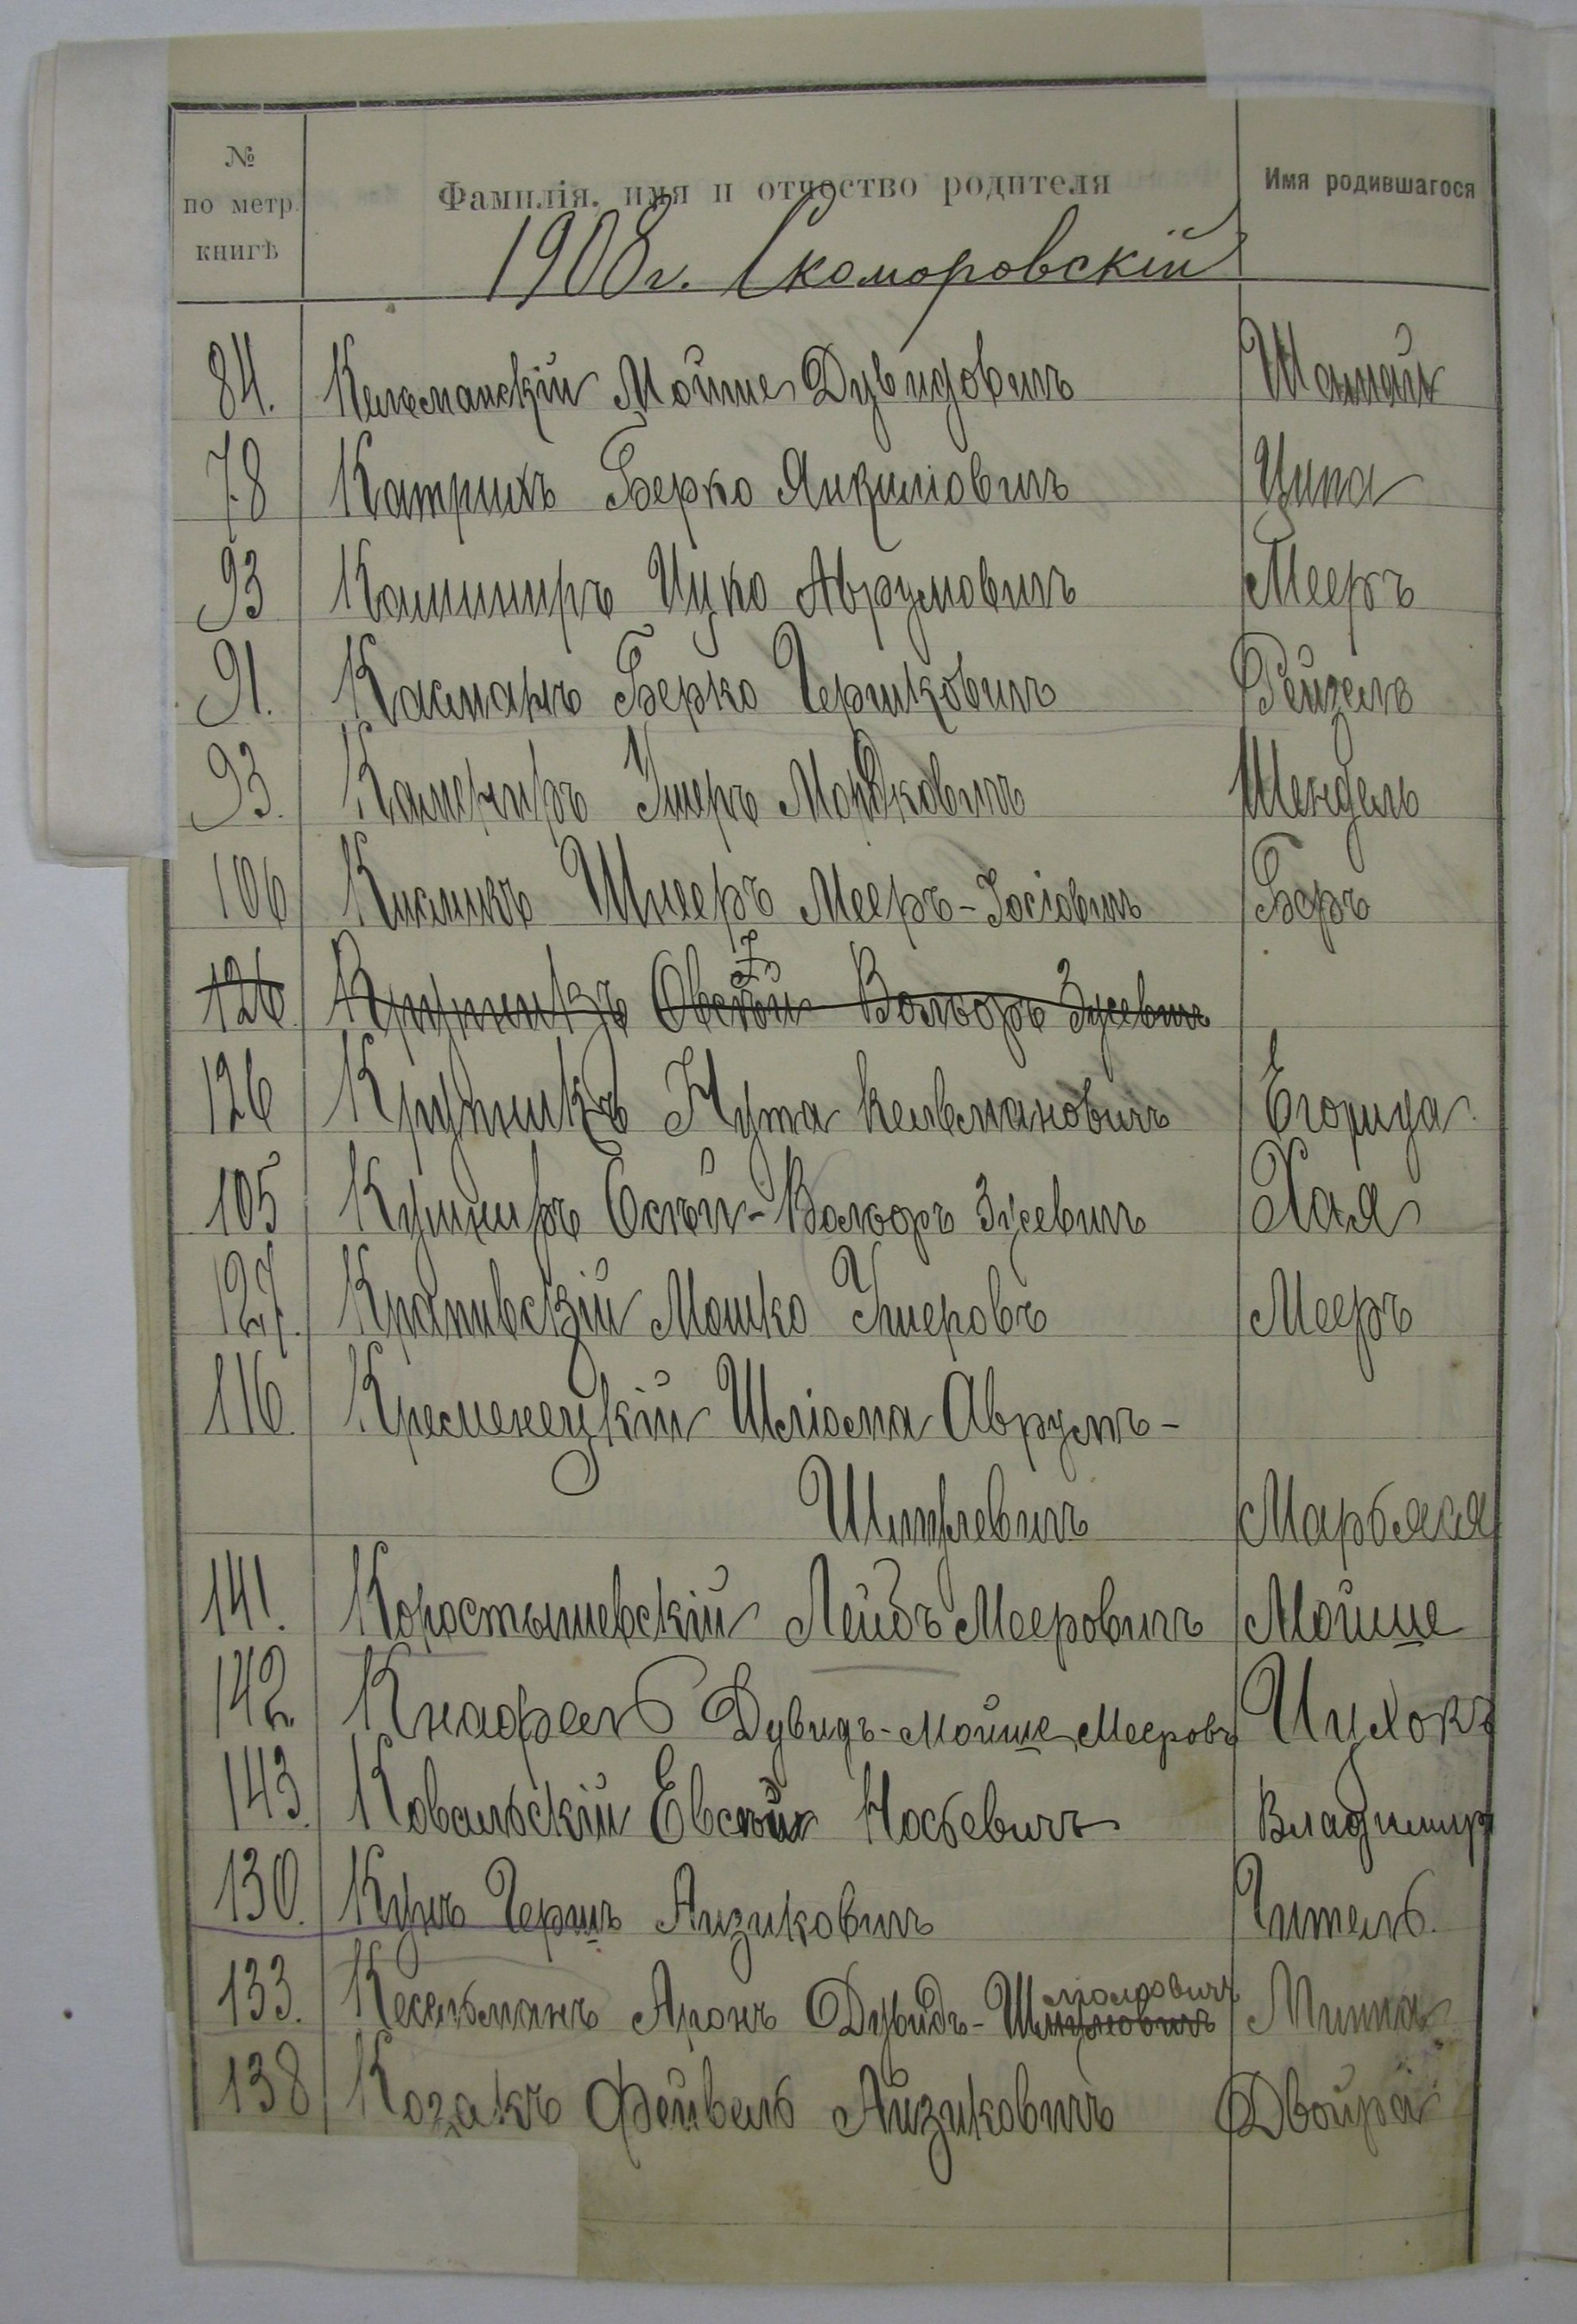 № по метр. книгѣ Фамилія, имя и отчество родителя Имя родившагося
1908 г. Скоморовскій
84. Кельманскій Мойше Дувидовичъ Шамай
78 Катрихъ Берко Янкелiовичъ Ципа
93 Кашниръ Ицко Аврумовичъ Мееръ
91. Касманъ Берко Гершковичъ Рейзель
93. Камениръ Ушеръ Мордковичъ Шендель
106 Кисликъ Шнееръ Мееръ-Іосіовичъ Беръ
126. Крупникъ Овсѣй Волько Зусевичъ
126 Крупникъ Нута Кельмановичъ
105 Кушниръ Евсѣй-Волько Зусевичъ Хая
127. Крапивскій Мошко Ушеровъ Мееръ
116. Кременецкій Шліома Аврумъ-
Шмулевичъ Марьяся
141. Коростышевскій Лейбъ Мееровичъ Мойше
142 Кнафель Дувидъ-Мойше Мееровъ Ицхокъ
143. Ковальскій Евсѣй Носьевичъ Владимиръ
130. Кунъ Гершъ Аизиковичъ Гитель.
133. Кесельманъ Аронъ Дувидъ-Шмулевичъ Минца
138 Козакъ Фейвель Айзиковичъ Двойра